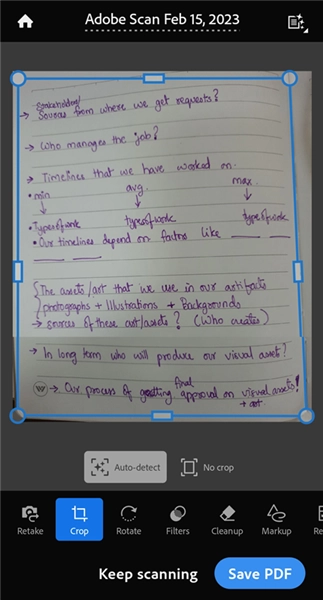 Adobe Scan Feb 15, 2023
Stakeholders/
→ Sources from where we get requests?
→ Who manages the job?
→ Timelines that we have worked on.
• min avg. max.
↓ ↓ ↓
• Types of work types of work types of work
• Our timelines depend on factors like ____ ____
____ ____
{The assets/art that we use in our artifacts
photographs + Illustrations + Backgrounds
→ sources of these art/assets? (Who creates)
→ In long term who will produce our visual assets?
final
W → Our process of getting approval on visual assets?
+ art
Auto-detect No crop
Retake Crop Rotate Filters Cleanup Markup Re
Keep scanning Save PDF